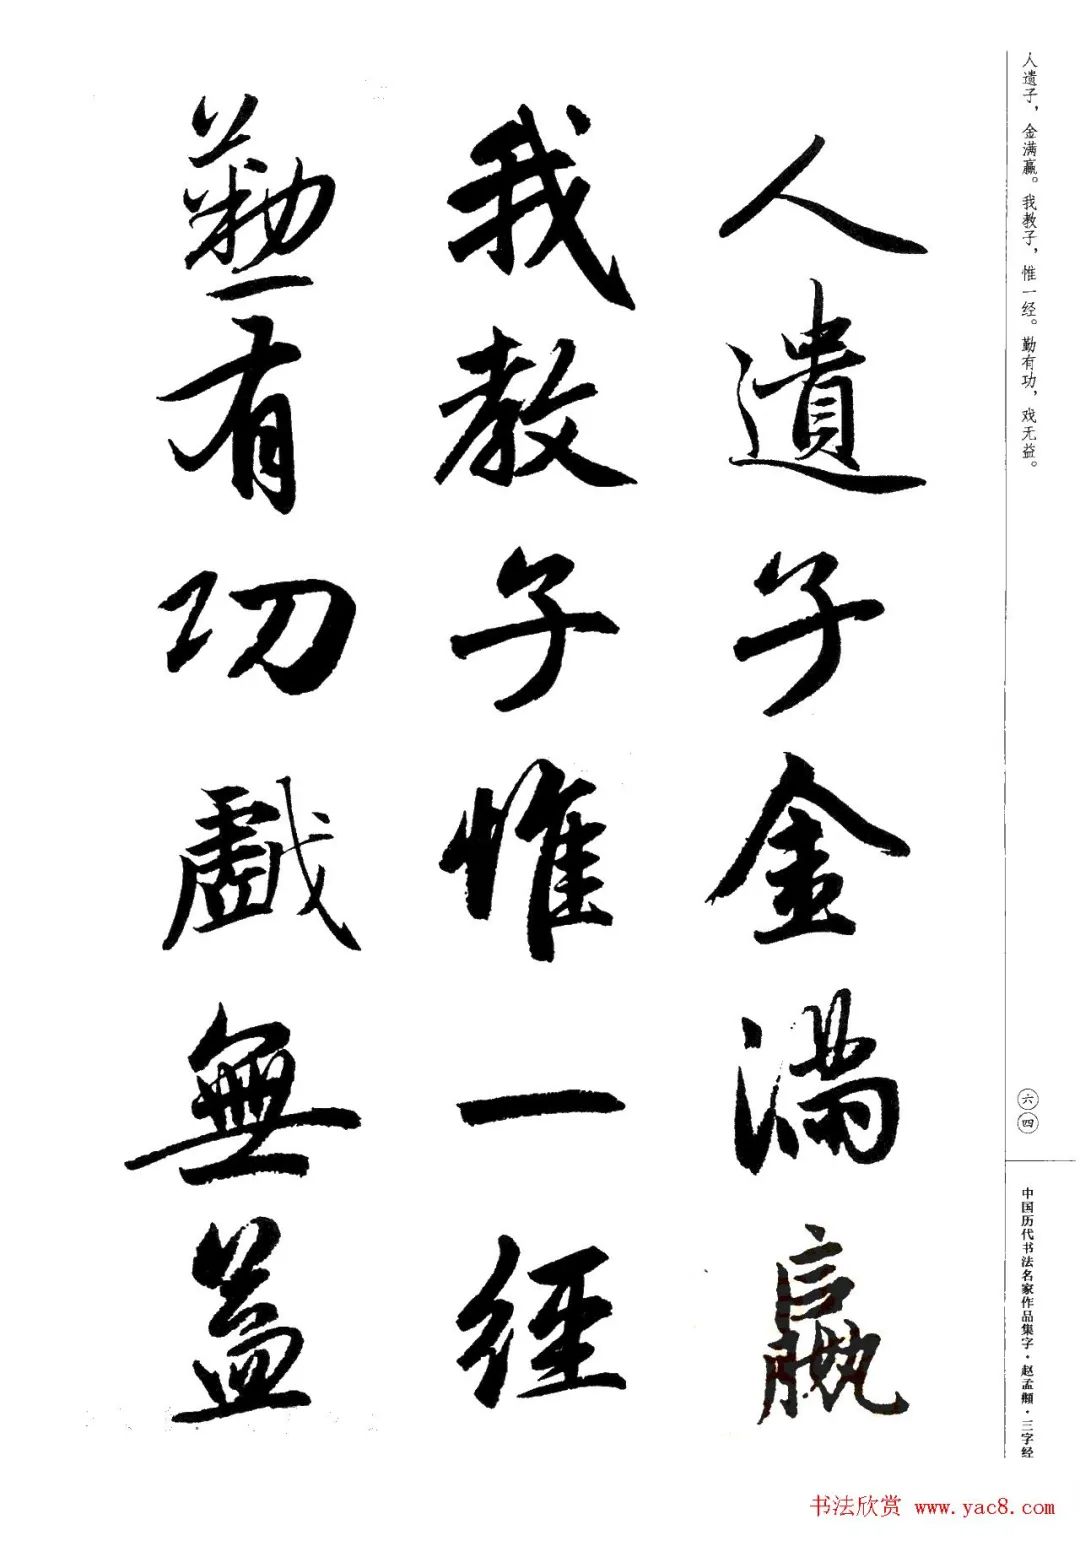 人遗子，金满赢。我教子，惟一经。勤有功，戏无益。
人遺子金满嬴
我教子惟一經
懃有功戲無益
六四
中国历代书法名家作品集字·赵孟頫·三字经
书法欣赏 www.yac8.com